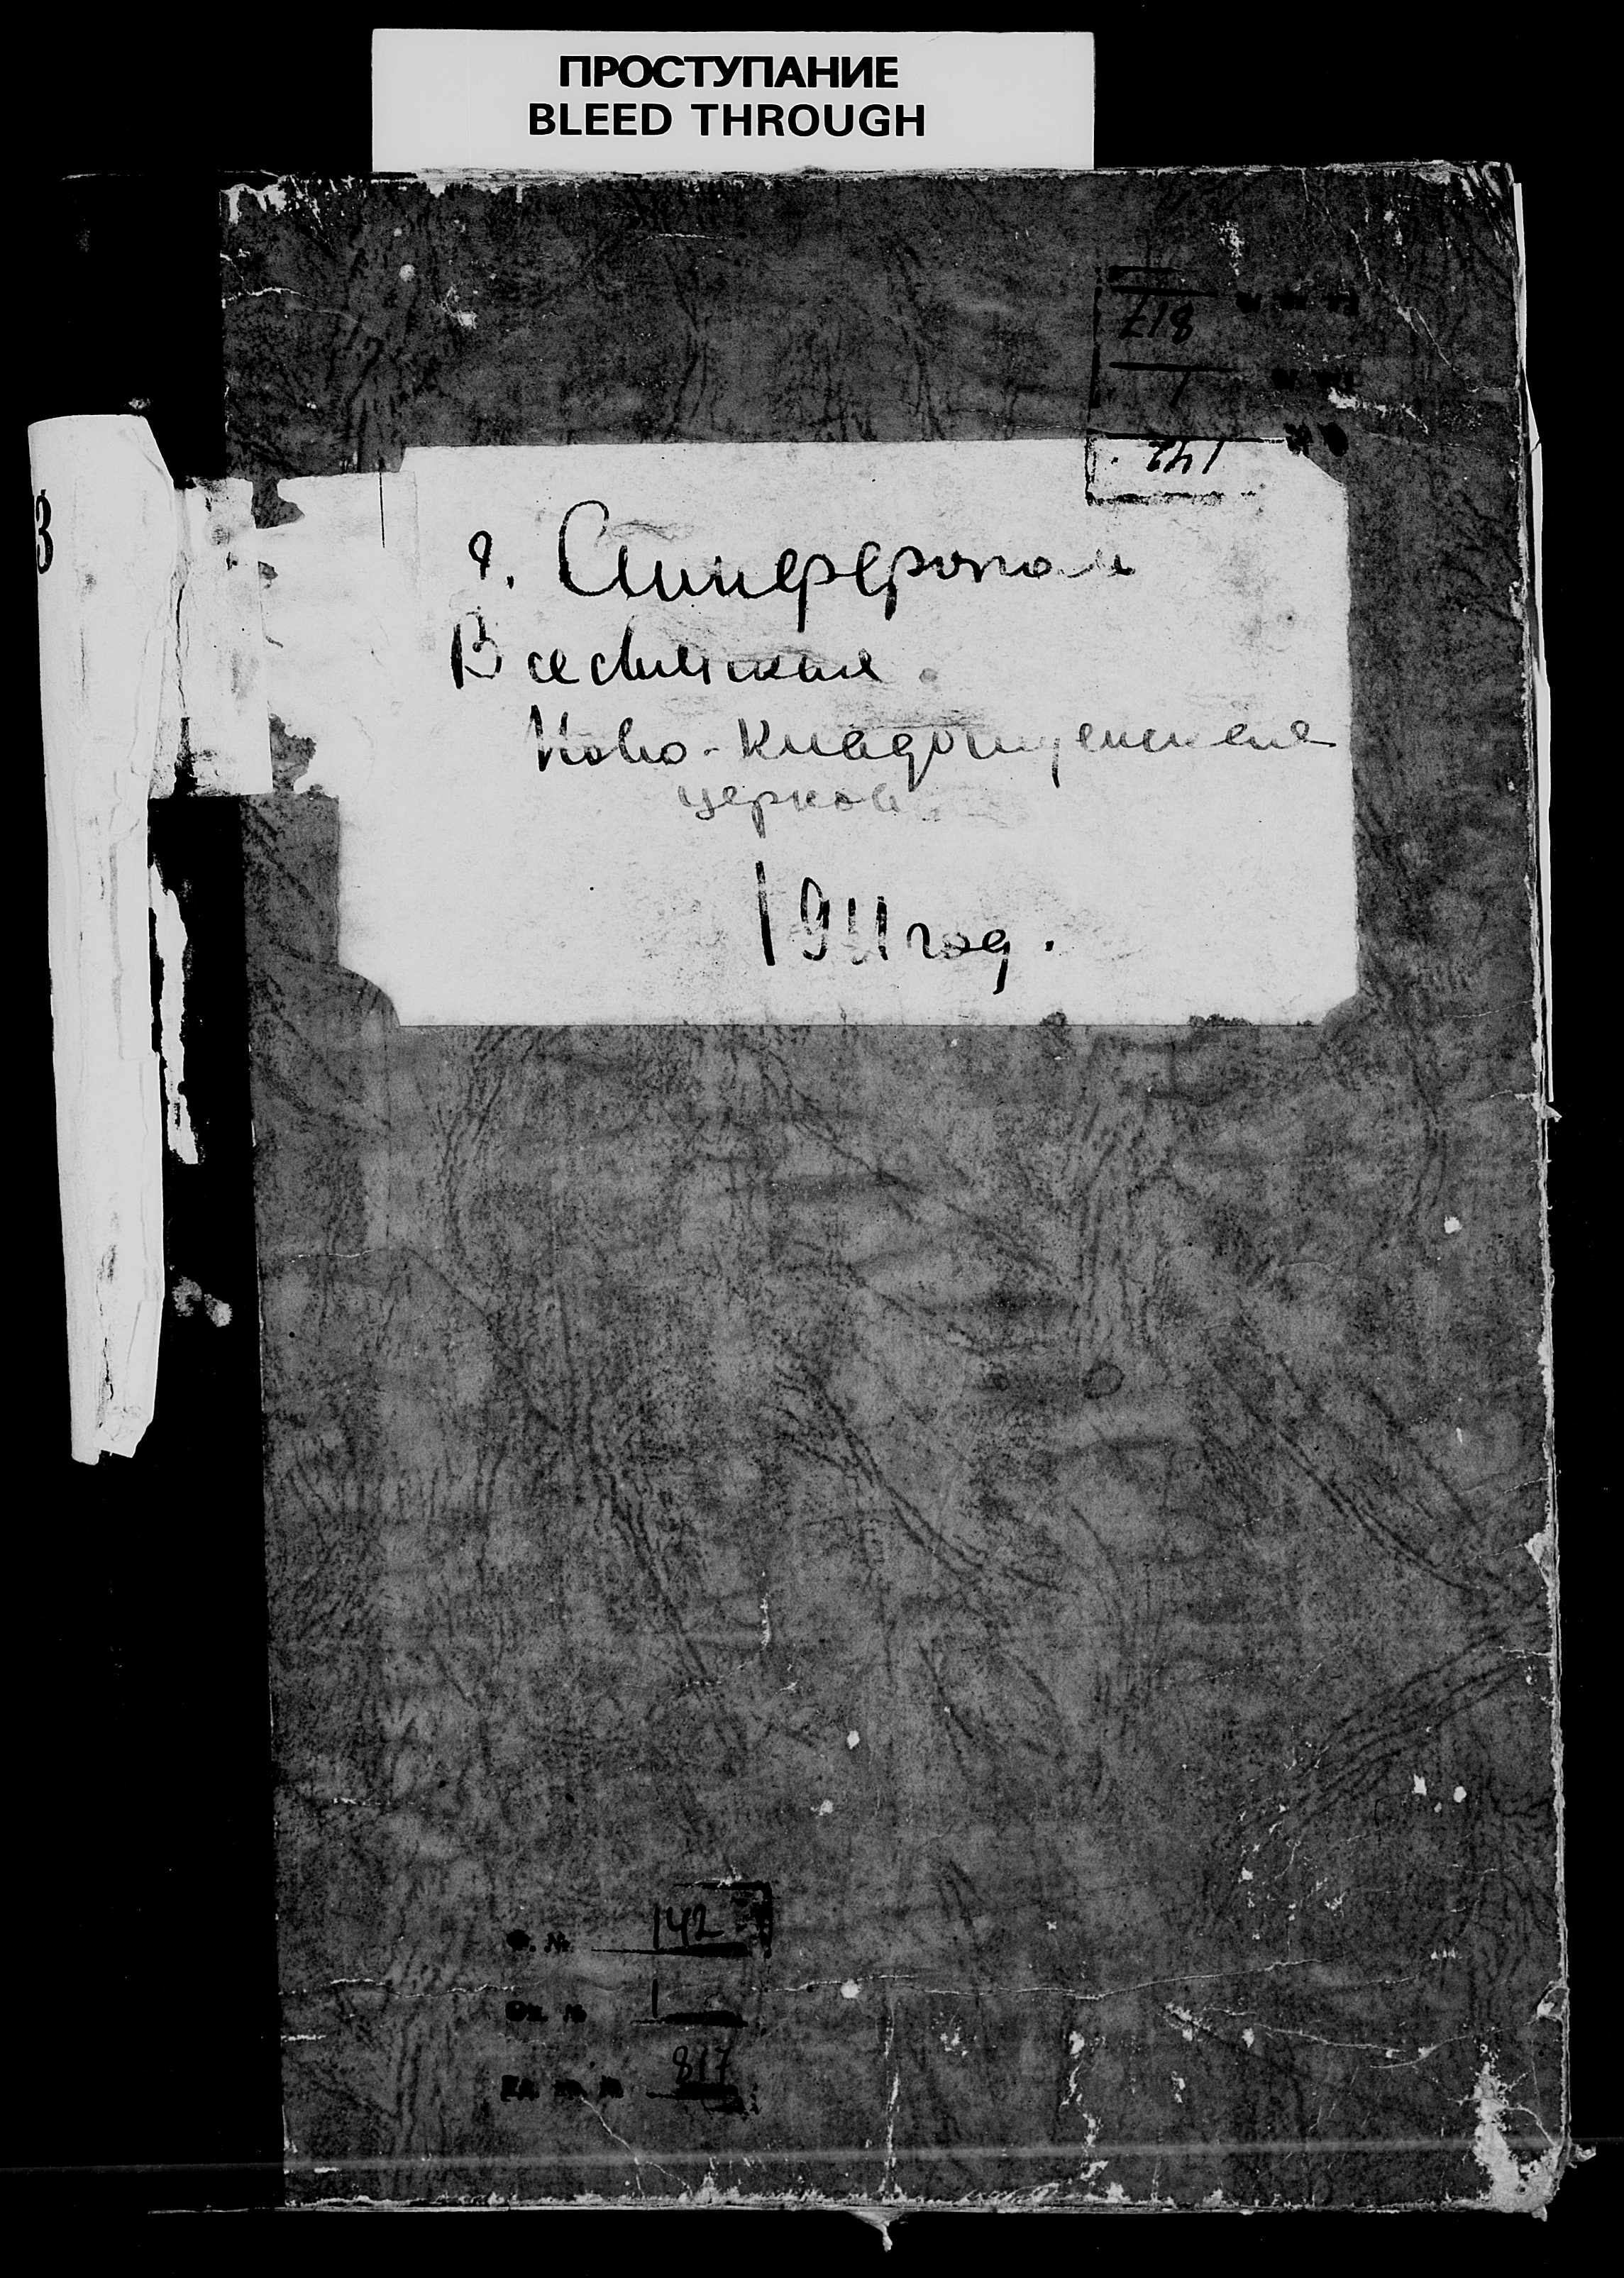 ПРОСТУПАНИЕ
BLEED THROUGH
817
1
142
г. Симферополь
Всесвятская
Ново-Кладбищенская
церковь
1911 год.
Ф. № 142
Оп. № 1
Ед. хр. № 817